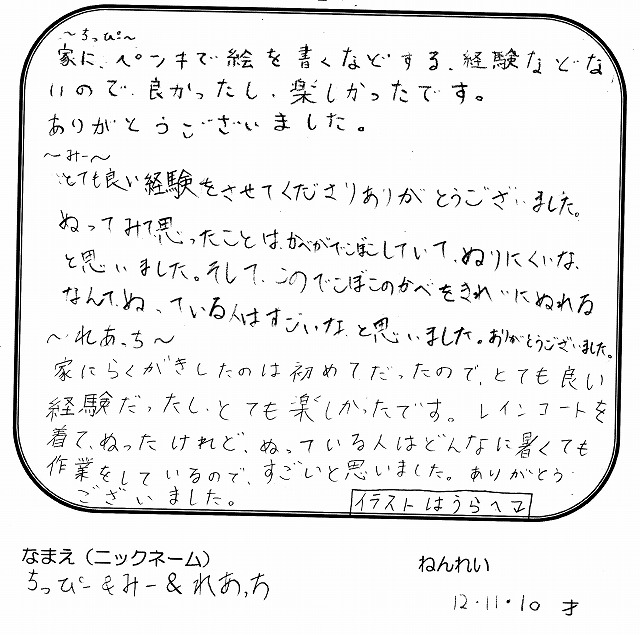 ～ちっぴ～
家に、ペンキで絵を書くなどする、経験などな
いので、良かったし、楽しかったです。
ありがとうございました。
～みー～
とても良い経験をさせてくださりありがとうございました。
ぬってみて思ったことは、かべがでこぼこしていて、ぬりにくいな、
と思いました。そして、このでこぼこのかべをきれいにぬれる
なんて、ぬっている人はすごいな、と思いました。ありがとうございました。
～れあっち～
家にらくがきしたのは初めてだったので、とても良い
経験だったし、とても楽しかったです。レインコートを
着て、ぬったけれど、ぬっている人はどんなに暑くても
作業をしているので、すごいと思いました。ありがとう
ございました。
イラストはうらへ
なまえ（ニックネーム）
ちっぴー&みー&れあっち
ねんれい
12・11・10 才